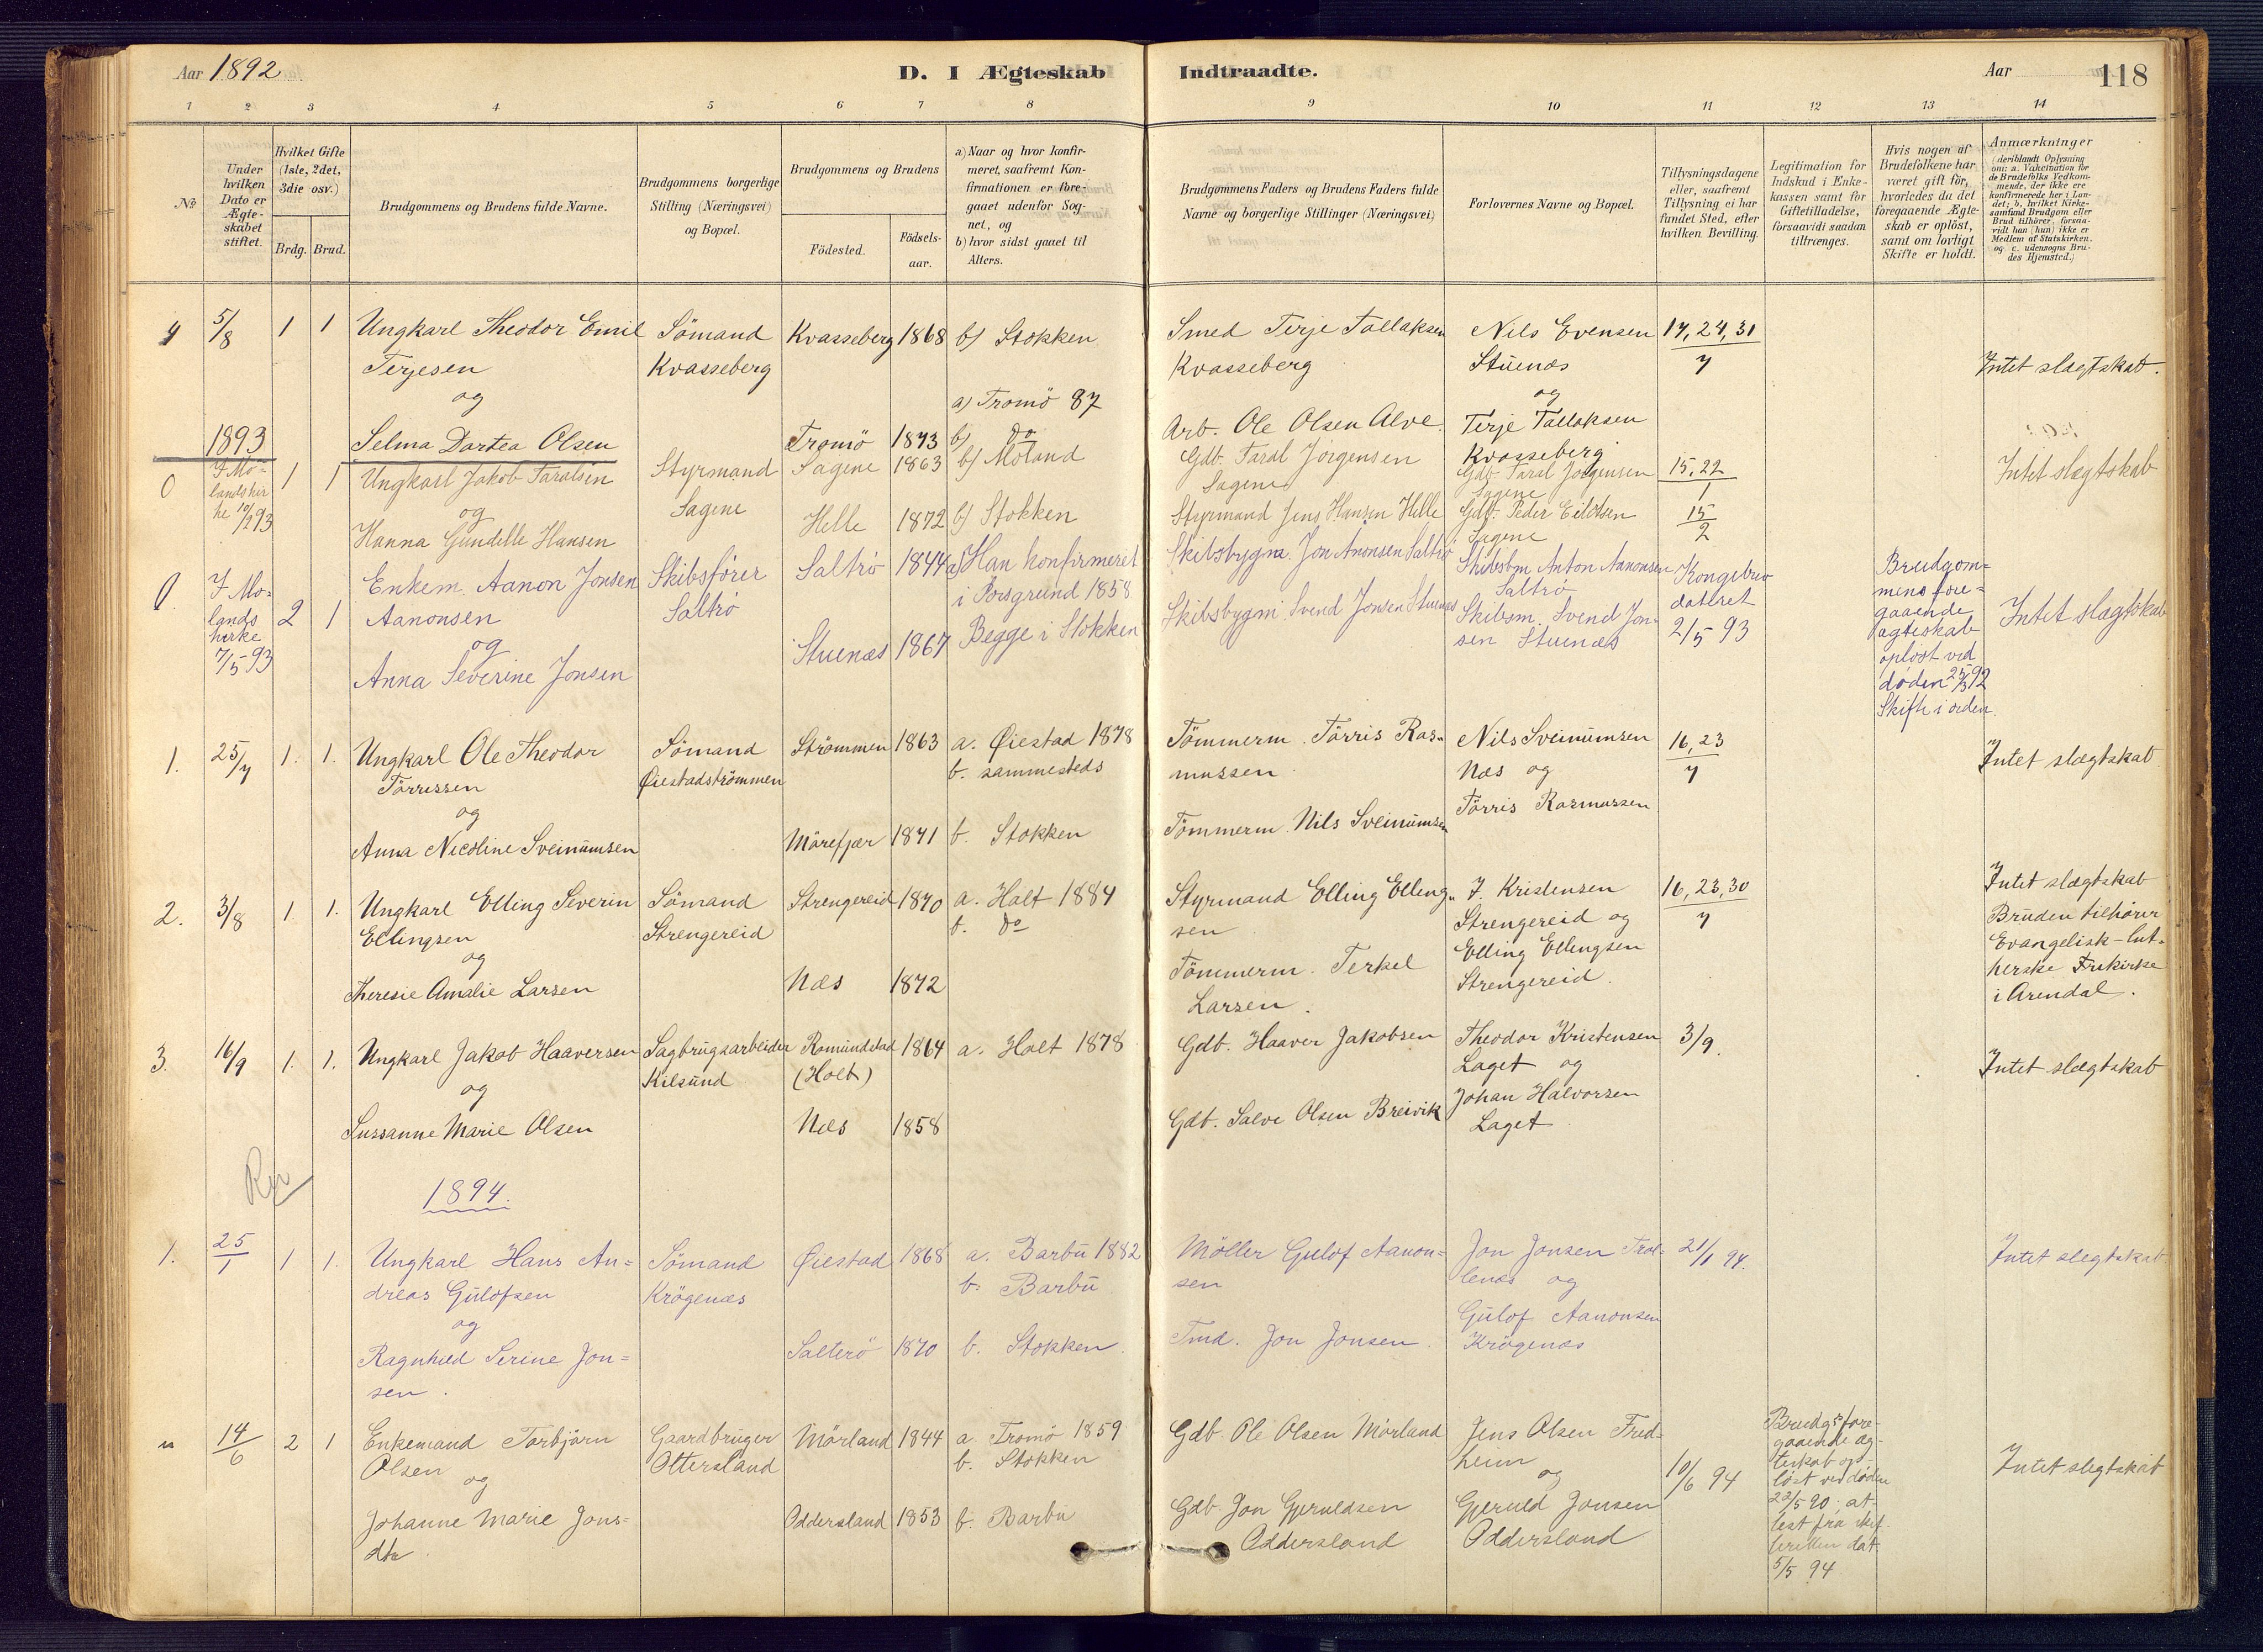 Aar 1892
D. I Ægteskab
Indtraadte.
Aar
118
1 2 3 4 5 6 7 8 9 10 11 12 13 14
№
Under
hvilken
Dato er
Ægte-
skabet
stiftet.
Hvilket Gifte
(1ste, 2det,
3die osv.)
Brdg. Brud.
Brudgommens og Brudens fulde Navne.
Brudgommens borgerlige
Stilling (Næringsvei)
og Bopæl.
Brudgommens og Brudens
Födested.
Födsels-
aar.
a) Naar og hvor konfir-
meret, saafremt Kon-
firmationen er fore-
gaaet udenfor Sog-
net, og
b) hvor sidst gaaet til
Alters.
Brudgommens Faders og Brudens Faders fulde
Navne og borgerlige Stillinger (Næringsvei)
Forlovernes Navne og Bopæl.
Tillysningsdagene
eller, saafremt
Tillysning ei har
fundet Sted, efter
hvilken Bevilling.
Legitimation for
Indskud i Enke-
kassen samt for
Giftetilladelse,
forsaavidt saadan
tiltrænges.
Hvis nogen af
Brudefolkene har
været gift för,
hvorledes da det
foregaaende Ægte-
skab er oplöst,
samt om lovligt
Skifte er holdt.
Anmærkninger
(deriblandt Oplysning
om: a. Vakcination for
de Brudefolks Vedkom-
mende, der ikke ere
konfirmerede her i Lan-
det; b. hvilket Kirke-
samfund Brudgom eller
Brud tilhörer, forsaa-
vidt han (hun) ikke er
Medlem af Statskirken,
og c. udensogns Bru-
des Hjemsted.)
4 5/8 1 1 Ungkarl Theodor Emil
Terjesen
og
Selma Dortea Olsen
Sömand
Kvasseberg
Kvasseberg 1868 b) Stokken
a) Tromö 87
Tromö 1873 b) do
Smed Terje Tallaksen
Kvasseberg
Arb. Ole Olsen Alve.
Nils Evensen
Stuenæs
og
Terje Tallaksen
Kvasseberg
17, 24, 31
7
Intet slægtskab.
1893
0 I Mo-
lands kir
ke 10/2 93
1 1 Ungkarl Jakob Taralsen
og
Hanna Gundelle Hansen
Styrmand
Sagene
Sagene 1863 b) Moland
Helle 1872 b) Stokken
Gdb. Taral Jörgensen
Sagene
Styrmand Jens Hansen Helle
Gdb. Taral Jörgensen
Sagene
Gdb. Peder Eilotsen
Sagene
15, 22
1
15
2
Intet slægtskab
0. I Mo-
lands
kirke
7/5 93
2 1 Enkem. Aanon Jonsen
Aanonsen
og
Anna Severine Jonsen
Skibsfører
Saltrö
Saltrö 1844 a) Han konfirmeret
i Porsgrund 1858
Stuenæs 1867 Begge i Stokken
Skibsbygm. Jon Anonsen Saltrö
Skibsbygm Svend Jonsen Stuenæs
Skibsbm Anton Aanonsen
Saltrö
Skibsm. Svend Jon-
sen Stuenæs
Kongebrev
dateret
2/5 93
Brudgom-
mens fore-
gaaende
ægteskab
opløst ved
døden 25/3 92
Skifte i orden.
Intet slægtskab
1. 25/7 1. 1. Ungkarl Ole Theodor
Törressen
og
Anna Nicoline Sveinumsen
Sömand
Øiestadströmmen
Strömmen 1863 a. Øiestad 1878
b. sammesteds
Mörefjær 1871 b. Stokken
Tömmerm. Törris Ras-
mussen
Tömmerm. Nils Sveinumsen
Nils Sveinumsen
Næs og
Törris Rasmussen
16, 23
7
Intet slægtskab
2. 3/8 1. 1. Ungkarl Elling Severin
Ellingsen
og
Theresie Amalie Larsen
Sömand
Strengereid
Strengereid 1870 a. Holt 1884
b. do
Næs 1872
Styrmand Elling Elling-
sen
Tömmerm. Terkel
Larsen.
J. Kristensen
Strengereid og
Elling Ellingsen
Strengereid.
16, 23, 30
7
Intet slægtskab
Bruden tilhörer
Evangelisk-lut-
herske Frikirke
i Arendal.
3. 16/9 1. 1. Ungkarl Jakob Haaversen
og
Sussanne Marie Olsen
Sagbrugsarbeider
Kilsund
Romundstad
(Holt)
1864 a. Holt 1878
Næs 1858
Gdb. Haaver Jakobsen
Gdb. Salve Olsen Breivik
Theodor Kristensen
Laget og
Johan Halvorsen
Laget
3/9.
Intet slægtskab
1894.
1. 25/1 1 1. Ungkarl Hans An-
dreas Gulofsen
og
Ragnhild Serine Jon-
sen.
Sömand
Krögenæs
Øiestad 1868 a. Barbu 1882
b. Barbu
Salterö 1870 b. Stokken.
Möller Gulof Aanon-
sen
Tmd. Jon Jonsen.
Jon Jonsen Trol-
lenæs og
Gulof Aanonsen
Krögenæs
21/1 94.
Intet slegtskab
14/6 2 1 Enkemand Torbjörn
Olsen
og
Johanne Marie Jons-
dtr
Gaardbruger
Ottersland
Mörland 1844 a. Tromö 1859
b. Stokken
Oddersland 1853 b. Barbu
Gdb. Ole Olsen Mörland
Gdb. Jon Gjeruldsen
Oddersland
Jens Olsen Fred-
heim
og
Gjeruld Jonsen
Oddersland
10/6 94
Brudgs fore-
gaaende æg-
teskab op-
löst ved döden
22/5 90, at-
test fra skif
teretten dat
5/5 94
Intet slegtskab